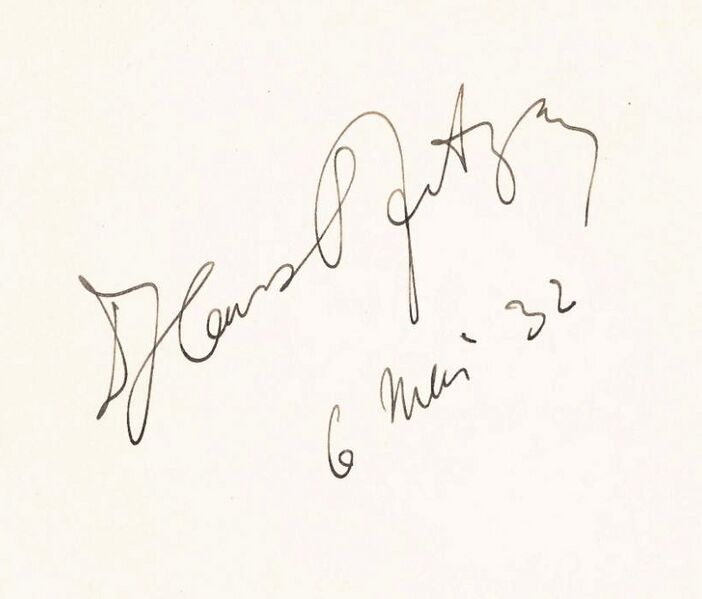 Hans Pfitzner
6 Mai 32